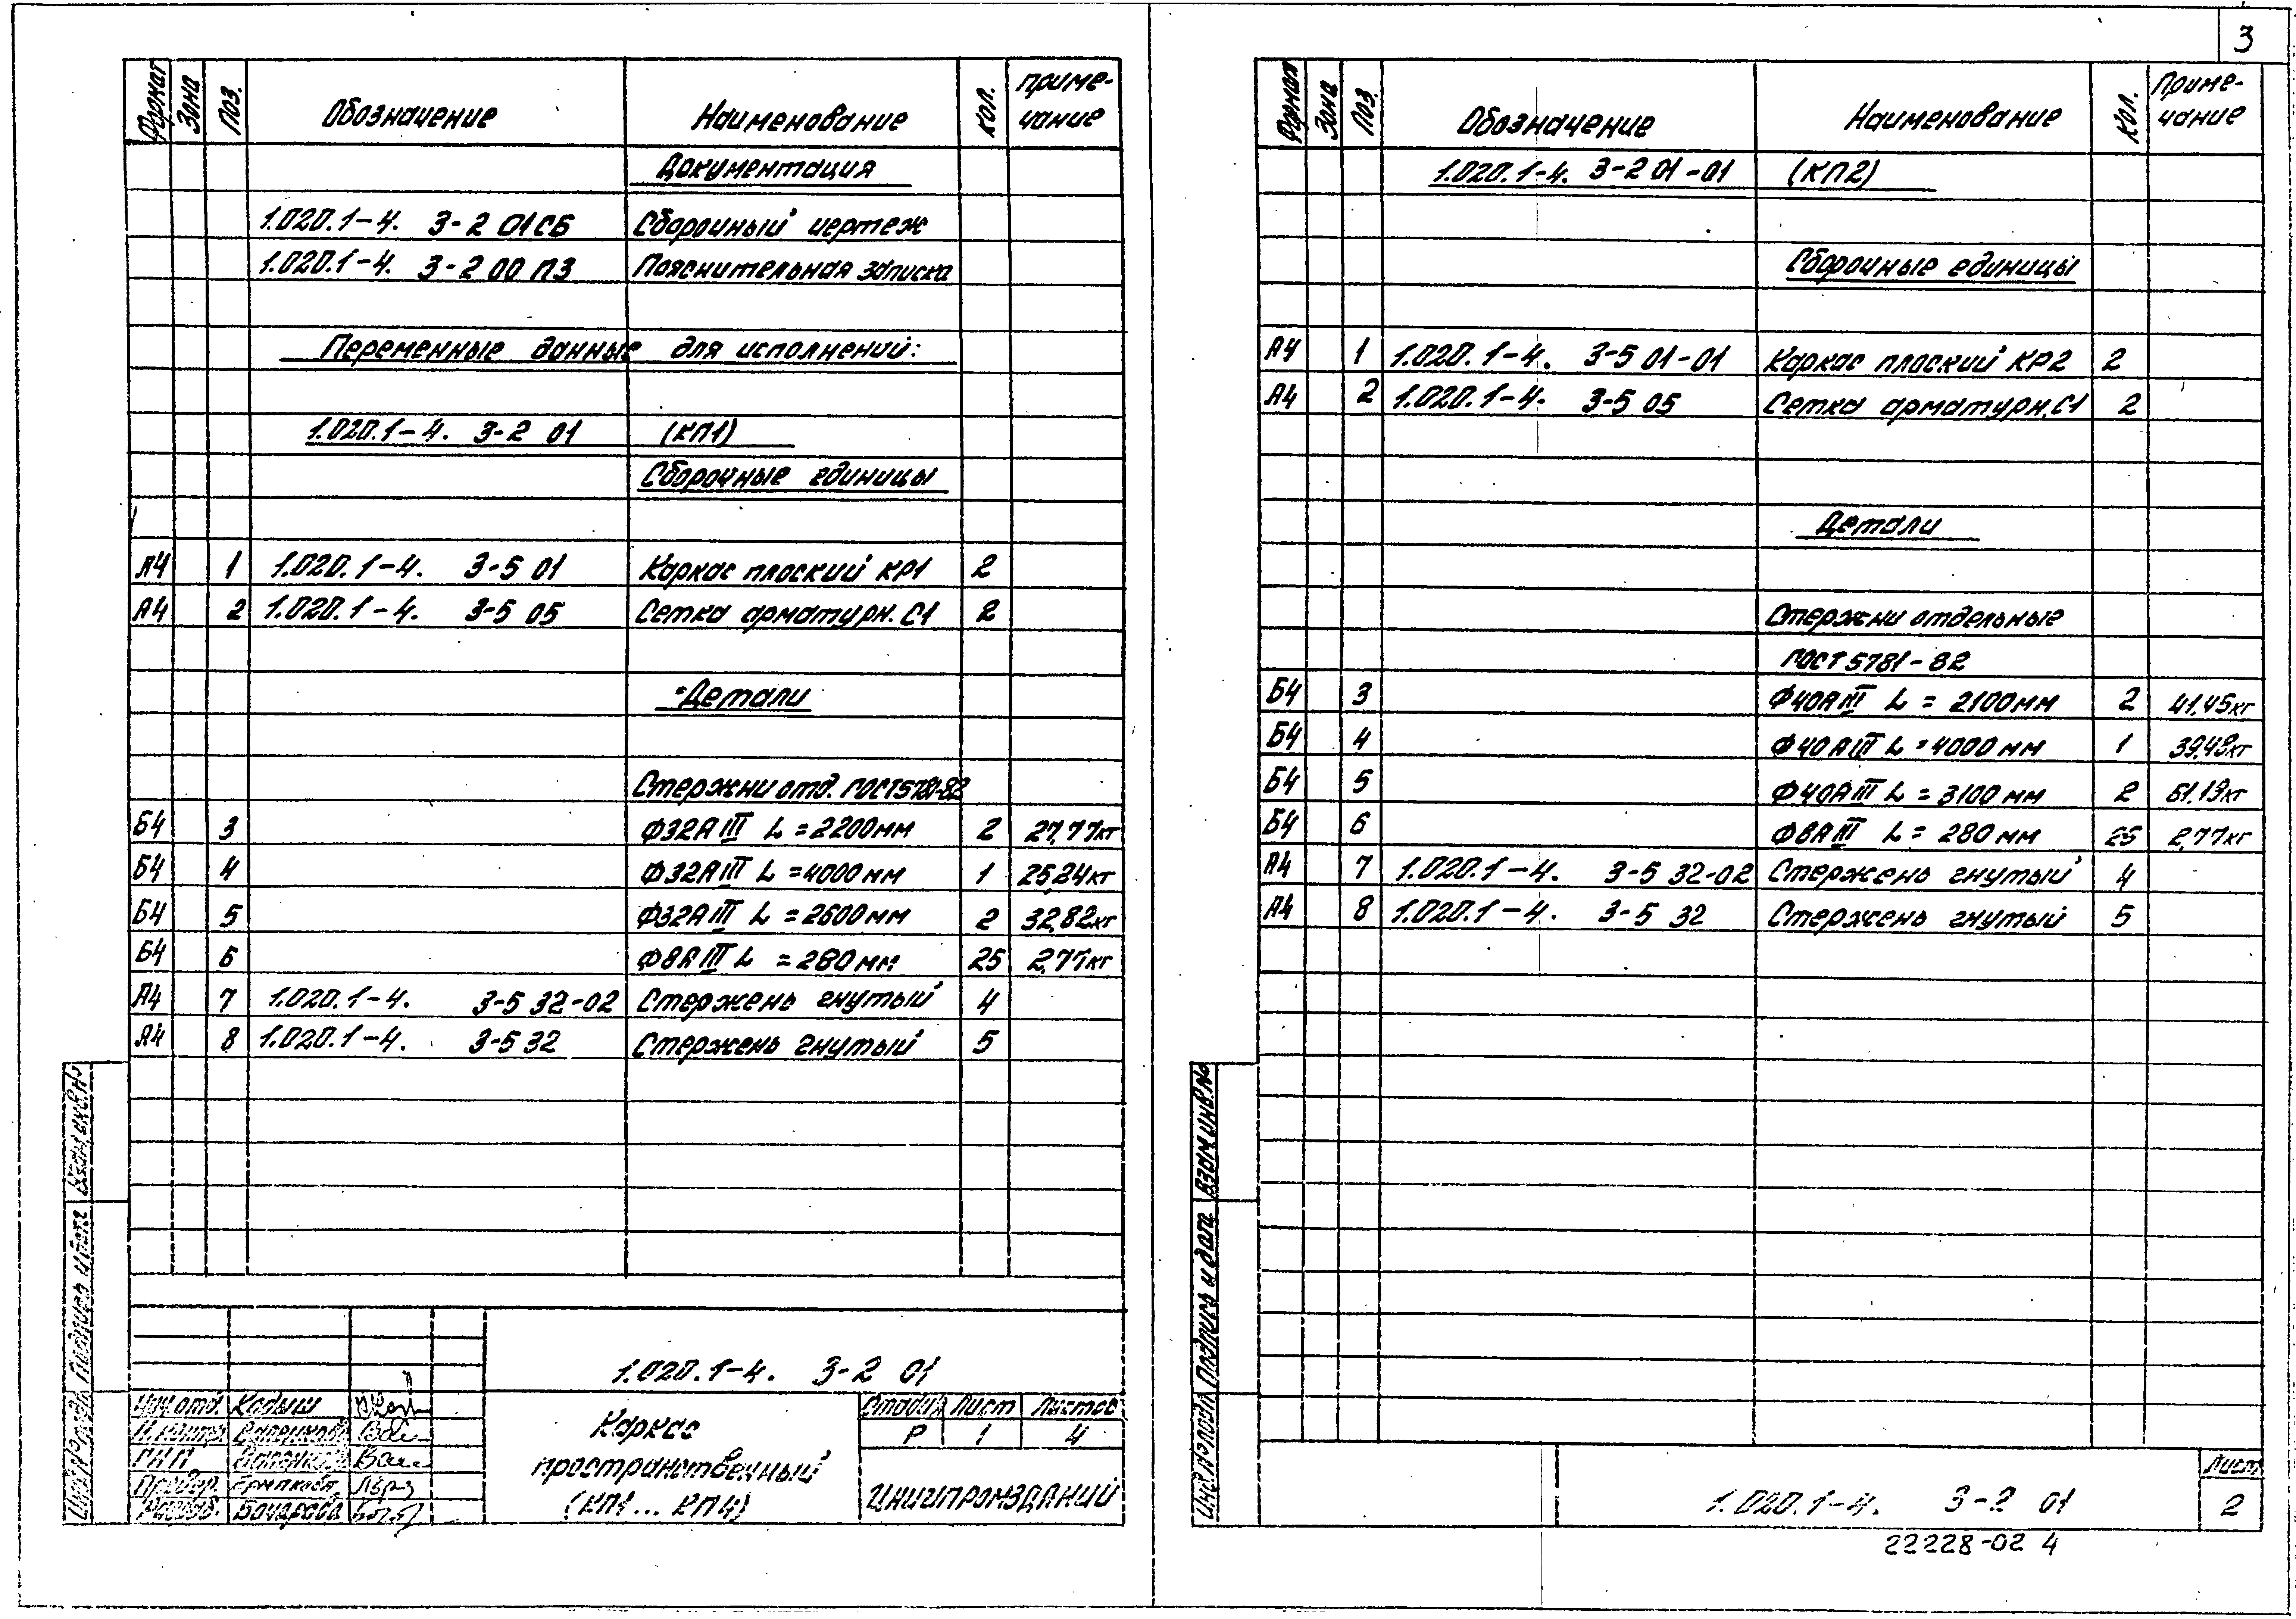 3
Формат Зона Поз. Обозначение Наименование Кол. Примечание
Документация
1.020.1-4. 3-2 01СБ Сборочный чертеж
1.020.1-4. 3-2 00 ПЗ Пояснительная записка
Переменные данные для исполнений:
1.020.1-4. 3-2 01 (КП1)
Сборочные единицы
А4 1 1.020.1-4. 3-5 01 Каркас плоский КР1 2
А4 2 1.020.1-4. 3-5 05 Сетка арматурн. С1 2
Детали
Стержни отд. ГОСТ5781-82
Б4 3 Ф32АIII L=2200мм 2 27,77кг
Б4 4 Ф32АIII L=4000мм 1 25,24кг
Б4 5 Ф32АIII L=2600мм 2 32,82кг
Б4 6 Ф8АIII L=280мм 25 2,77кг
А4 7 1.020.1-4. 3-5 32-02 Стержень гнутый 4
А4 8 1.020.1-4. 3-5 32 Стержень гнутый 5
Взам.инв.№
Подпись и дата
Инв.№ подл.
1.020.1-4. 3-2 01
Нач.отд. Кодыш
Н.контр.
ГИП
Провер.
Разраб. Бочарова
Каркас
пространственный
(КП1... КП4)
Стадия Лист Листов
Р 1 4
ЦНИИПРОМЗДАНИЙ
Формат Зона Поз. Обозначение Наименование Кол. Примечание
1.020.1-4. 3-2 01-01 (КП2)
Сборочные единицы
А4 1 1.020.1-4. 3-5 01-01 Каркас плоский КР2 2
А4 2 1.020.1-4. 3-5 05 Сетка арматурн. С1 2
Детали
Стержни отдельные
ГОСТ 5781-82
Б4 3 Ф40АIII L=2100мм 2 41,45кг
Б4 4 Ф40АIII L=4000мм 1 39,48кг
Б4 5 Ф40АIII L=3100мм 2 61,19кг
Б4 6 Ф8АIII L=280мм 25 2,77кг
А4 7 1.020.1-4. 3-5 32-02 Стержень гнутый 4
А4 8 1.020.1-4. 3-5 32 Стержень гнутый 5
Взам инв.№
Подпись и дата
Инв.№ подл.
1.020.1-4. 3-2 01
Лист
2
22228-02 4